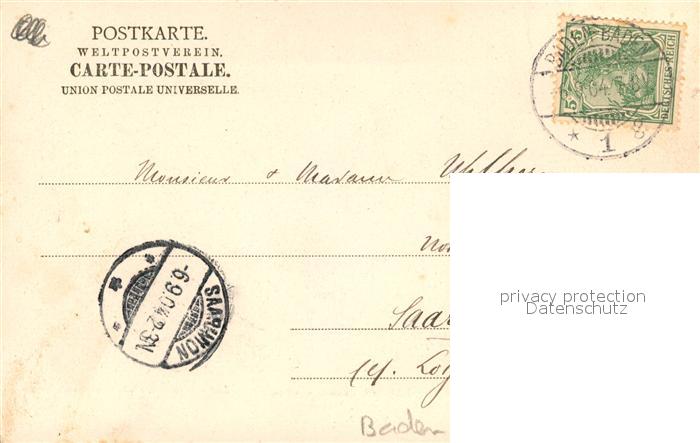 POSTKARTE.
WELTPOSTVEREIN.
CARTE-POSTALE.
UNION POSTALE UNIVERSELLE.
BADEN-BADEN
* 1
5
DEUTSCHES REICH
Monsieur & Madame
SAARUNION
6.9.04.2-3N
Saar
privacy protection
Datenschutz
Baden